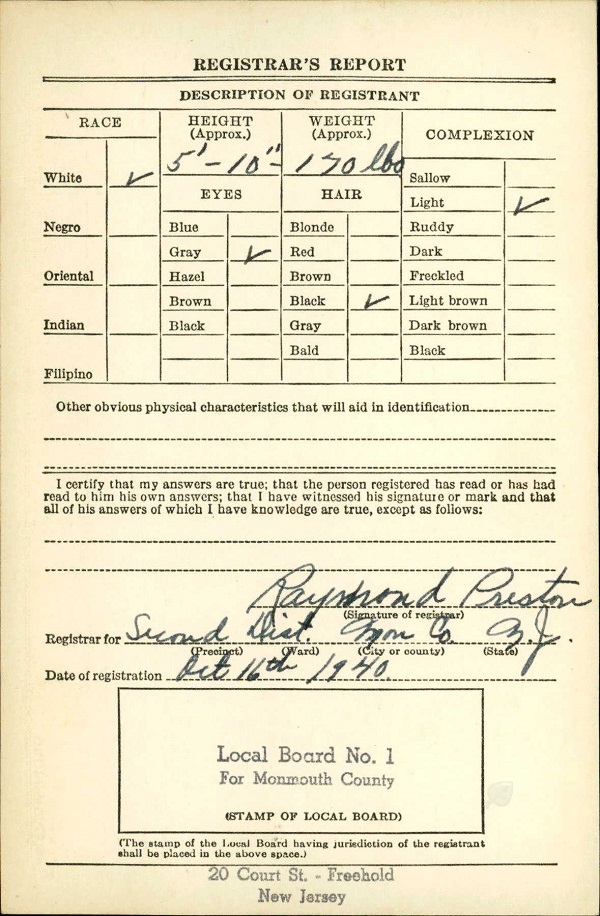 REGISTRAR'S REPORT
DESCRIPTION OF REGISTRANT
RACE
HEIGHT
(Approx.)
WEIGHT
(Approx.)
COMPLEXION
5'-10"- 170 lbs
White ✓
Sallow
EYES
HAIR
Light ✓
Negro
Blue
Blonde
Ruddy
Gray ✓
Red
Dark
Oriental
Hazel
Brown
Freckled
Brown
Black ✓
Light brown
Indian
Black
Gray
Dark brown
Bald
Black
Filipino
Other obvious physical characteristics that will aid in identification
I certify that my answers are true; that the person registered has read or has had
read to him his own answers; that I have witnessed his signature or mark and that
all of his answers of which I have knowledge are true, except as follows:
Raymond Preston
(Signature of registrar)
Registrar for Second Dist. Mon Co. N.J.
(Precinct) (Ward) (City or county) (State)
Date of registration Oct 16th 1940
Local Board No. 1
For Monmouth County
(STAMP OF LOCAL BOARD)
(The stamp of the Local Board having jurisdiction of the registrant
shall be placed in the above space.)
20 Court St. - Freehold
New Jersey